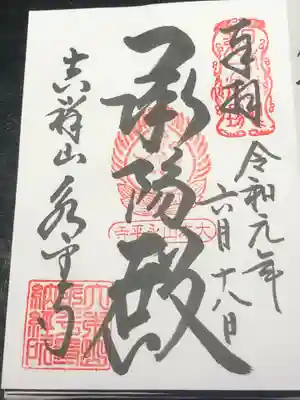 奉拝
令和元年
六月十八日
承陽殿
吉祥山永平寺
大本山永平寺